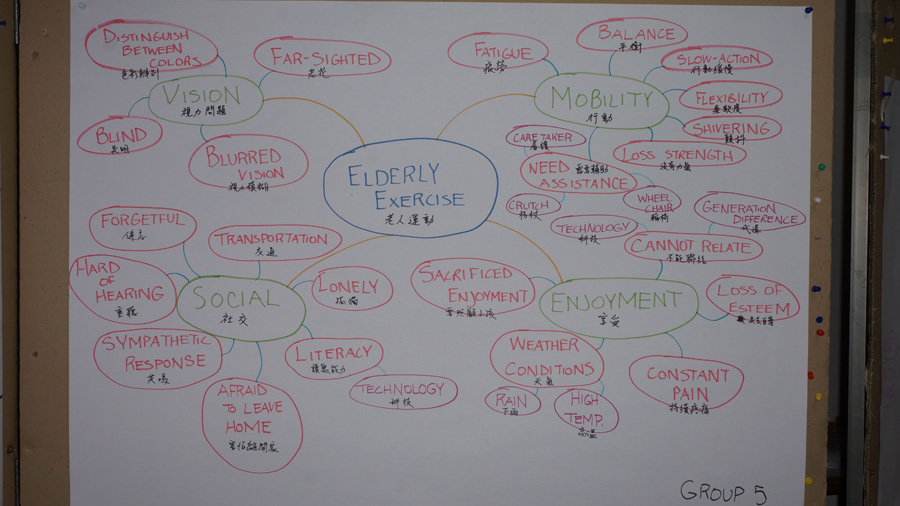 DISTINGUISH
BETWEEN
COLORS
色彩辨別
FAR-SIGHTED
老花
VISION
視力問題
BLIND
失明
BLURRED
VISION
視力模糊
FATIGUE
疲勞
BALANCE
平衡
SLOW-ACTION
行動緩慢
MOBILITY
行動
FLEXIBILITY
柔軟度
SHIVERING
顫抖
LOSS STRENGTH
沒有力氣
CARE TAKER
看護
NEED 需要輔助
ASSISTANCE
CRUTCH
拐杖
WHEEL
CHAIR
輪椅
ELDERLY
EXERCISE
老人運動
TECHNOLOGY
科技
GENERATION
DIFFERENCE
代溝
CANNOT RELATE
不能聯結
FORGETFUL
健忘
TRANSPORTATION
交通
HARD
OF
HEARING
重聽
SOCIAL
社交
LONELY
孤獨
SYMPATHETIC
RESPONSE
共鳴
LITERACY
讀寫能力
TECHNOLOGY
科技
AFRAID
TO LEAVE
HOME
害怕離開家
SACRIFICED
ENJOYMENT
ENJOYMENT
享受
LOSS OF
ESTEEM
WEATHER
CONDITIONS
天氣
RAIN
下雨
HIGH
TEMP.
高溫
CONSTANT
PAIN
持續疼痛
GROUP 5